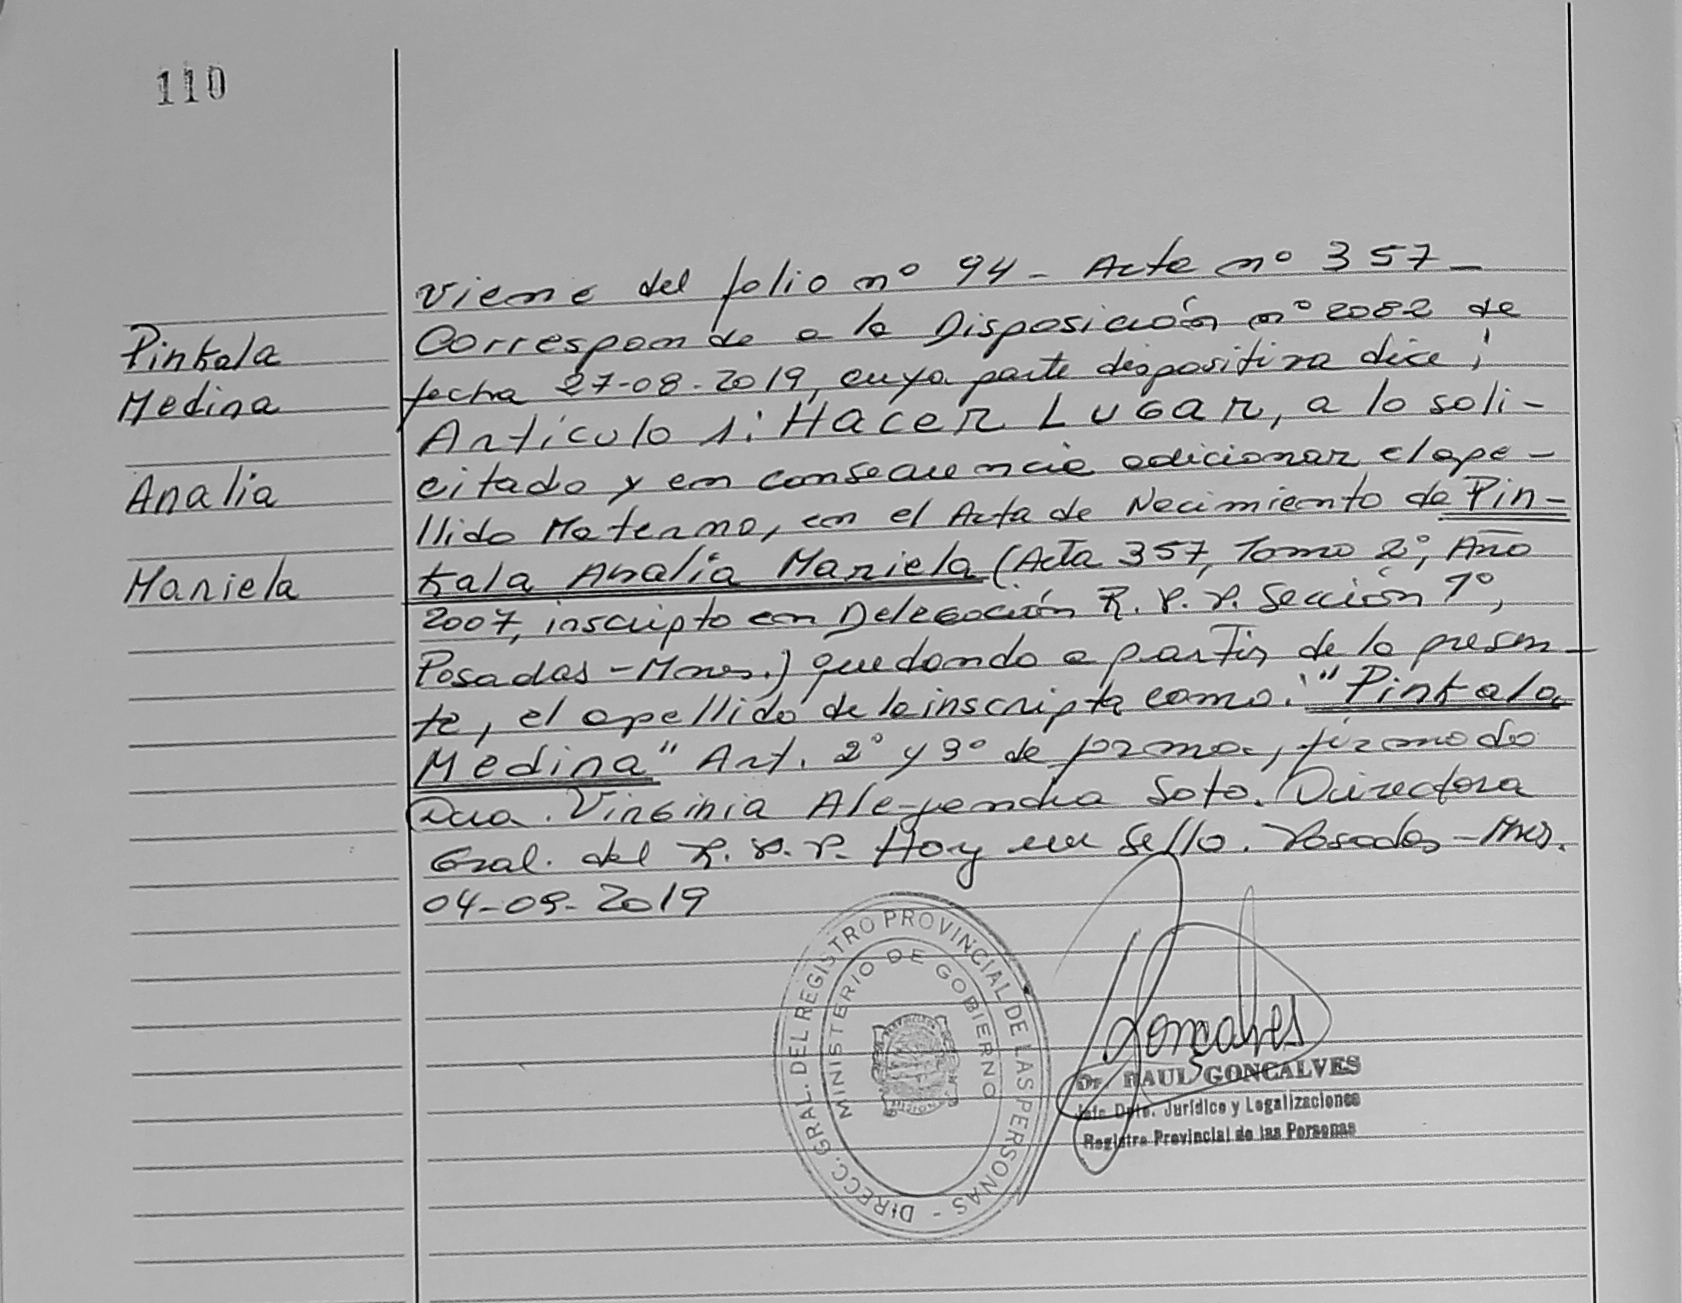 110
Pinkala
Medina
Analia
Mariela
Viene del folio nº 94 - Acta nº 357 -
Corresponde a la Disposición nº 2082 de
fecha 27-08-2019, cuya parte dispositiva dice:
Artículo 1: HACER LUGAR, a lo soli-
citado y en consecuencia adicionar el ape-
llido Materno, en el Acta de Nacimiento de Pin-
kala Analia Mariela (Acta 357, Tomo 2º, Año
2007, inscripto en Delegación R. P. P. Sección 1º,
Posadas - Mnes.) quedando a partir de la presen-
te, el apellido de la inscripta como: "Pinkala
Medina" Art. 2º y 3º de forma, firmado
Dra. Virginia Alejandra Soto. Directora
Gral. del R. P. P. Hay un sello. Posadas - Mnes.
04-09-2019
DIRECC. GRAL. DEL REGISTRO PROVINCIAL DE LAS PERSONAS -
MINISTERIO DE GOBIERNO
MISIONES
Goncalves
Dr. RAUL GONCALVES
Jefe Dpto. Jurídico y Legalizaciones
Registro Provincial de las Personas